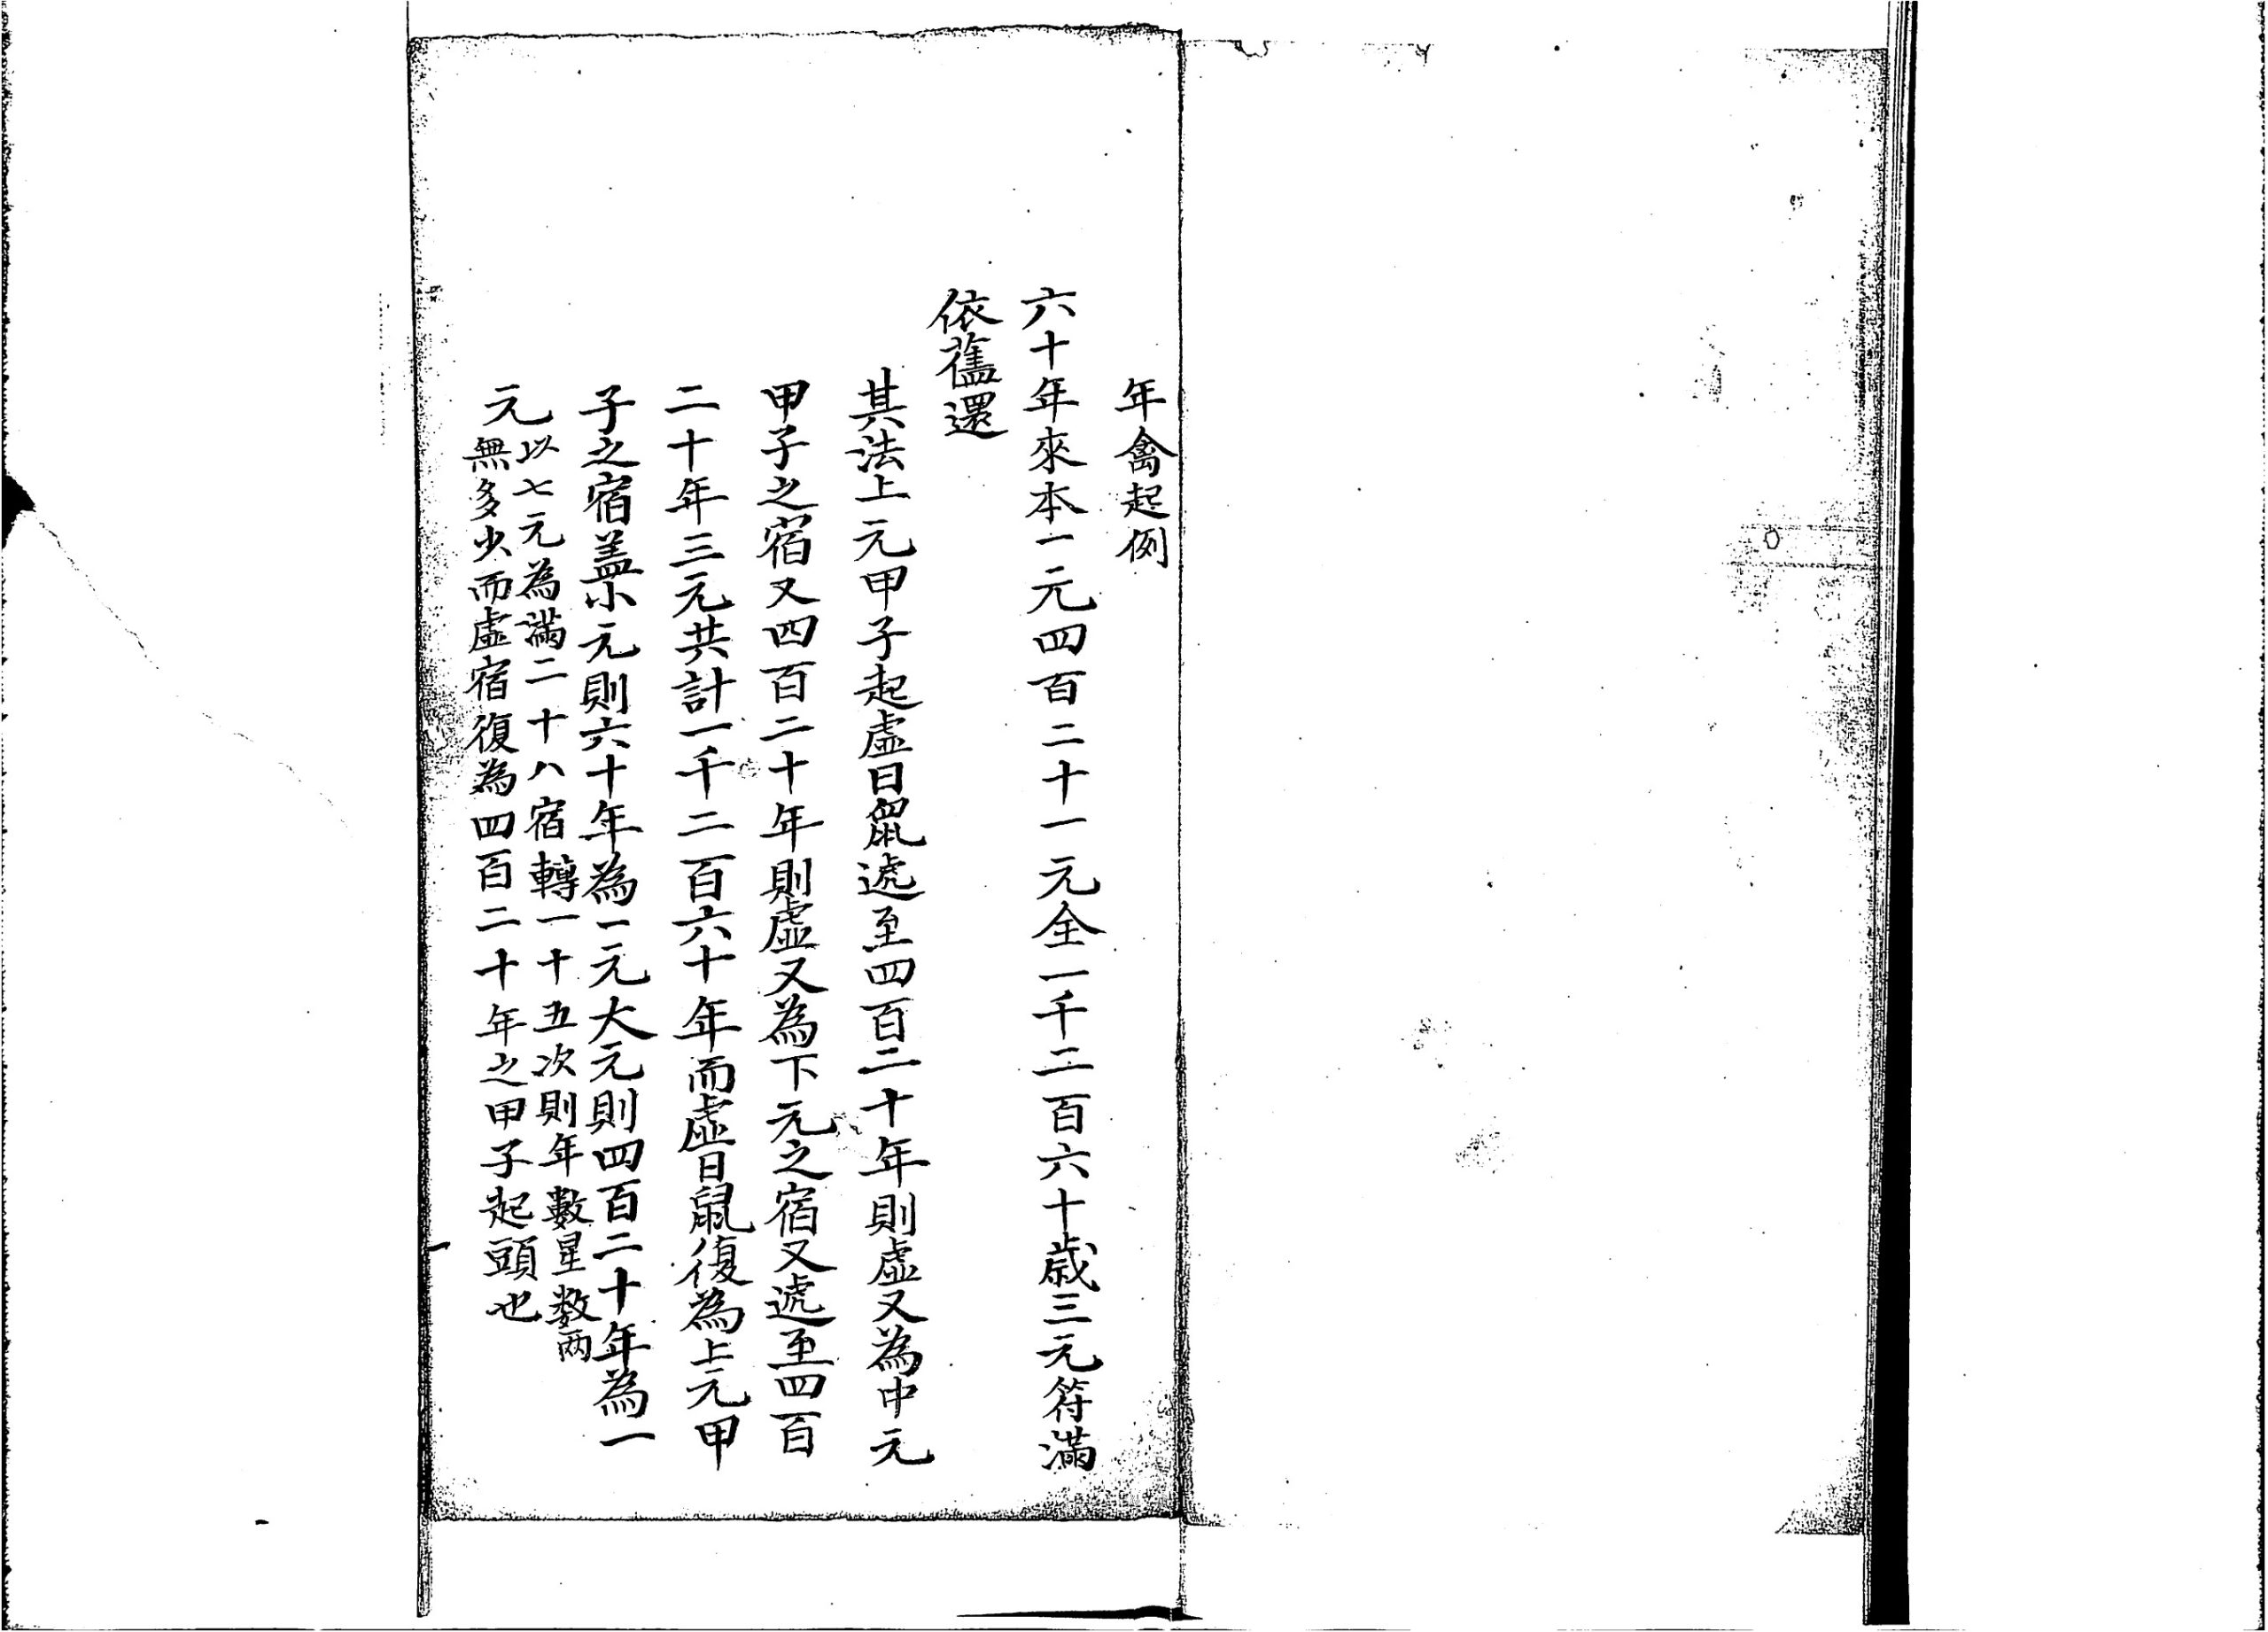 年禽起例
六十年來本一元四百二十一元全一千二百六十歲三元符滿
依舊還
其法上元甲子起虛日鼠遞至四百二十年則虛又為中元
甲子之宿又四百二十年則虛又為下元之宿又遞至四百
二十年三元共計一千二百六十年而虛日鼠復為上元甲
子之宿盖小元則六十年為一元大元則四百二十年為一
元
以七元為滿二十八宿轉一十五次則年數星数两
無多少而虛宿復為四百二十年之甲子起頭也